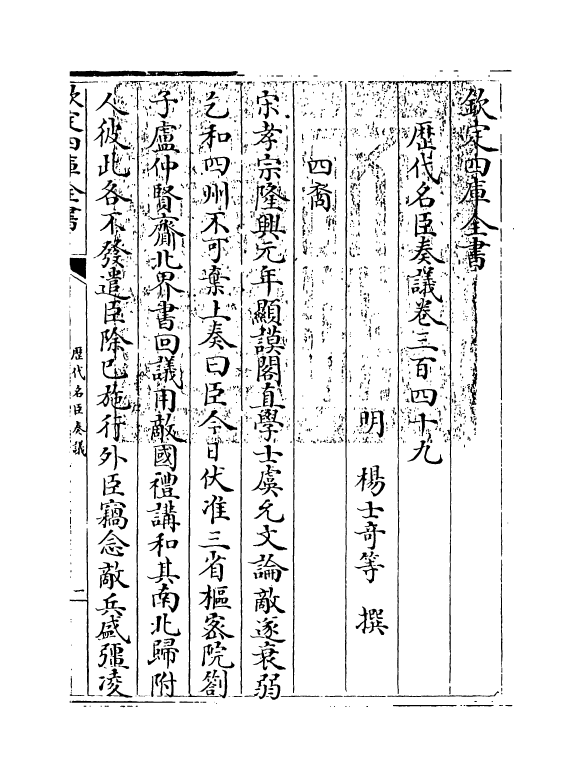 欽定四庫全書
歷代名臣奏議卷三百四十九
明 楊士奇等 撰
四裔
宋孝宗隆興元年顯謨閣直學士虞允文論敵遂衰弱
乞和四州不可棄上奏曰臣今日伏准三省樞密院劄
子盧仲賢齎北界書回議用敵國禮講和其南北歸附
人彼此各不發遣臣除已施行外臣竊念敵兵盛彊凌
欽定四庫全書
歷代名臣奏議